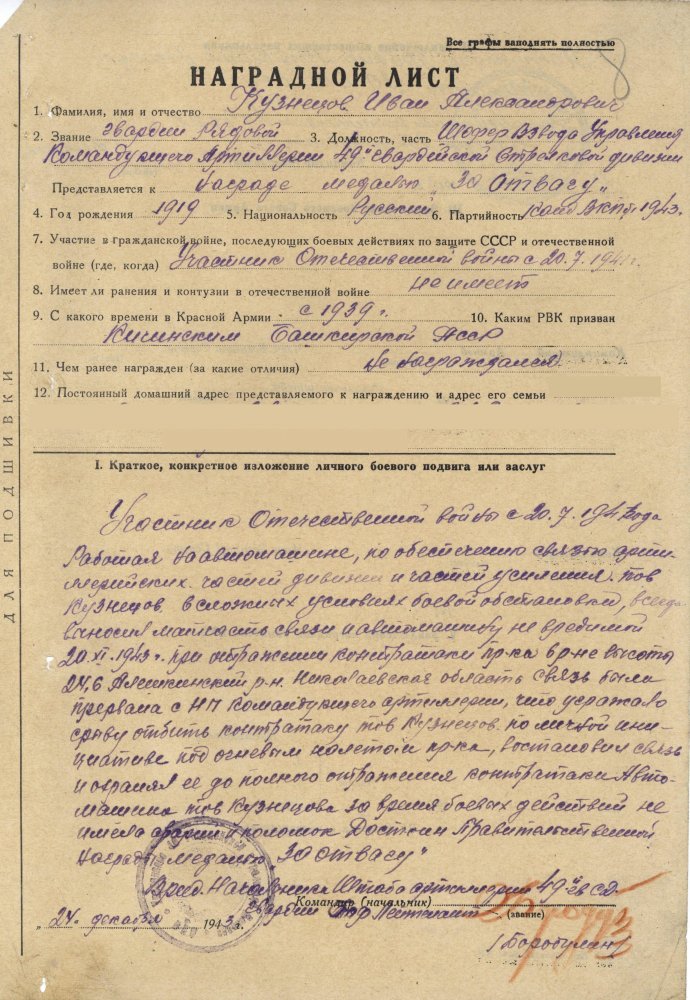 Все графы заполнять полностью
8
НАГРАДНОЙ ЛИСТ
1. Фамилия, имя и отчество Кузнецов Иван Александрович
2. Звание Гвардии Рядовой 3. Должность, часть Шофер Взвода Управления
Командующего Артиллерии 49й Гвардейской Стрелковой дивизии
Представляется к награде медалью "За отвагу"
4. Год рождения 1919 5. Национальность Русский 6. Партийность канд ВКП/б 1943г.
7. Участие в гражданской войне, последующих боевых действиях по защите СССР и отечественной
войне (где, когда) Участник Отечественной войны с 20.7.1941г.
8. Имеет ли ранения и контузии в отечественной войне не имеет
9. С какого времени в Красной Армии с 1939 г. 10. Каким РВК призван
Кичинским Башкирской АССР
11. Чем ранее награжден (за какие отличия) Не награждался
12. Постоянный домашний адрес представляемого к награждению и адрес его семьи
I. Краткое, конкретное изложение личного боевого подвига или заслуг
Участник Отечественной войны с 20.7.1941 года
Работая на автомашине, по обеспечению связью арти
ллерийских частей дивизии и частей усиления тов
Кузнецов в сложных условиях боевой обстановки, всегда
выносил матчасть связи и автомашину не вредимой
20.XI.1943г. при отражении контратаки пр-ка в р-не высоты
24,6 р-н. Николаевская область связь была
прервана с НП Командующего артиллерии, что угрожало
срыву отбить контратаку тов Кузнецов по личной ини-
циативе под огневым налетом пр-ка, востановил связь
и охранял ее до полного отражения контратаки Авто-
машина тов Кузнецова за время боевых действий не
имела аварий и поломок Достоин Правительственной
награды медалью "За отвагу"
Начальника Штаба артиллерии 49 гв СД
Командир (начальник)
гвардии Лейтенант (звание)
"24" декабря 1943г.
/Бородулин/
ДЛЯ ПОДШИВКИ